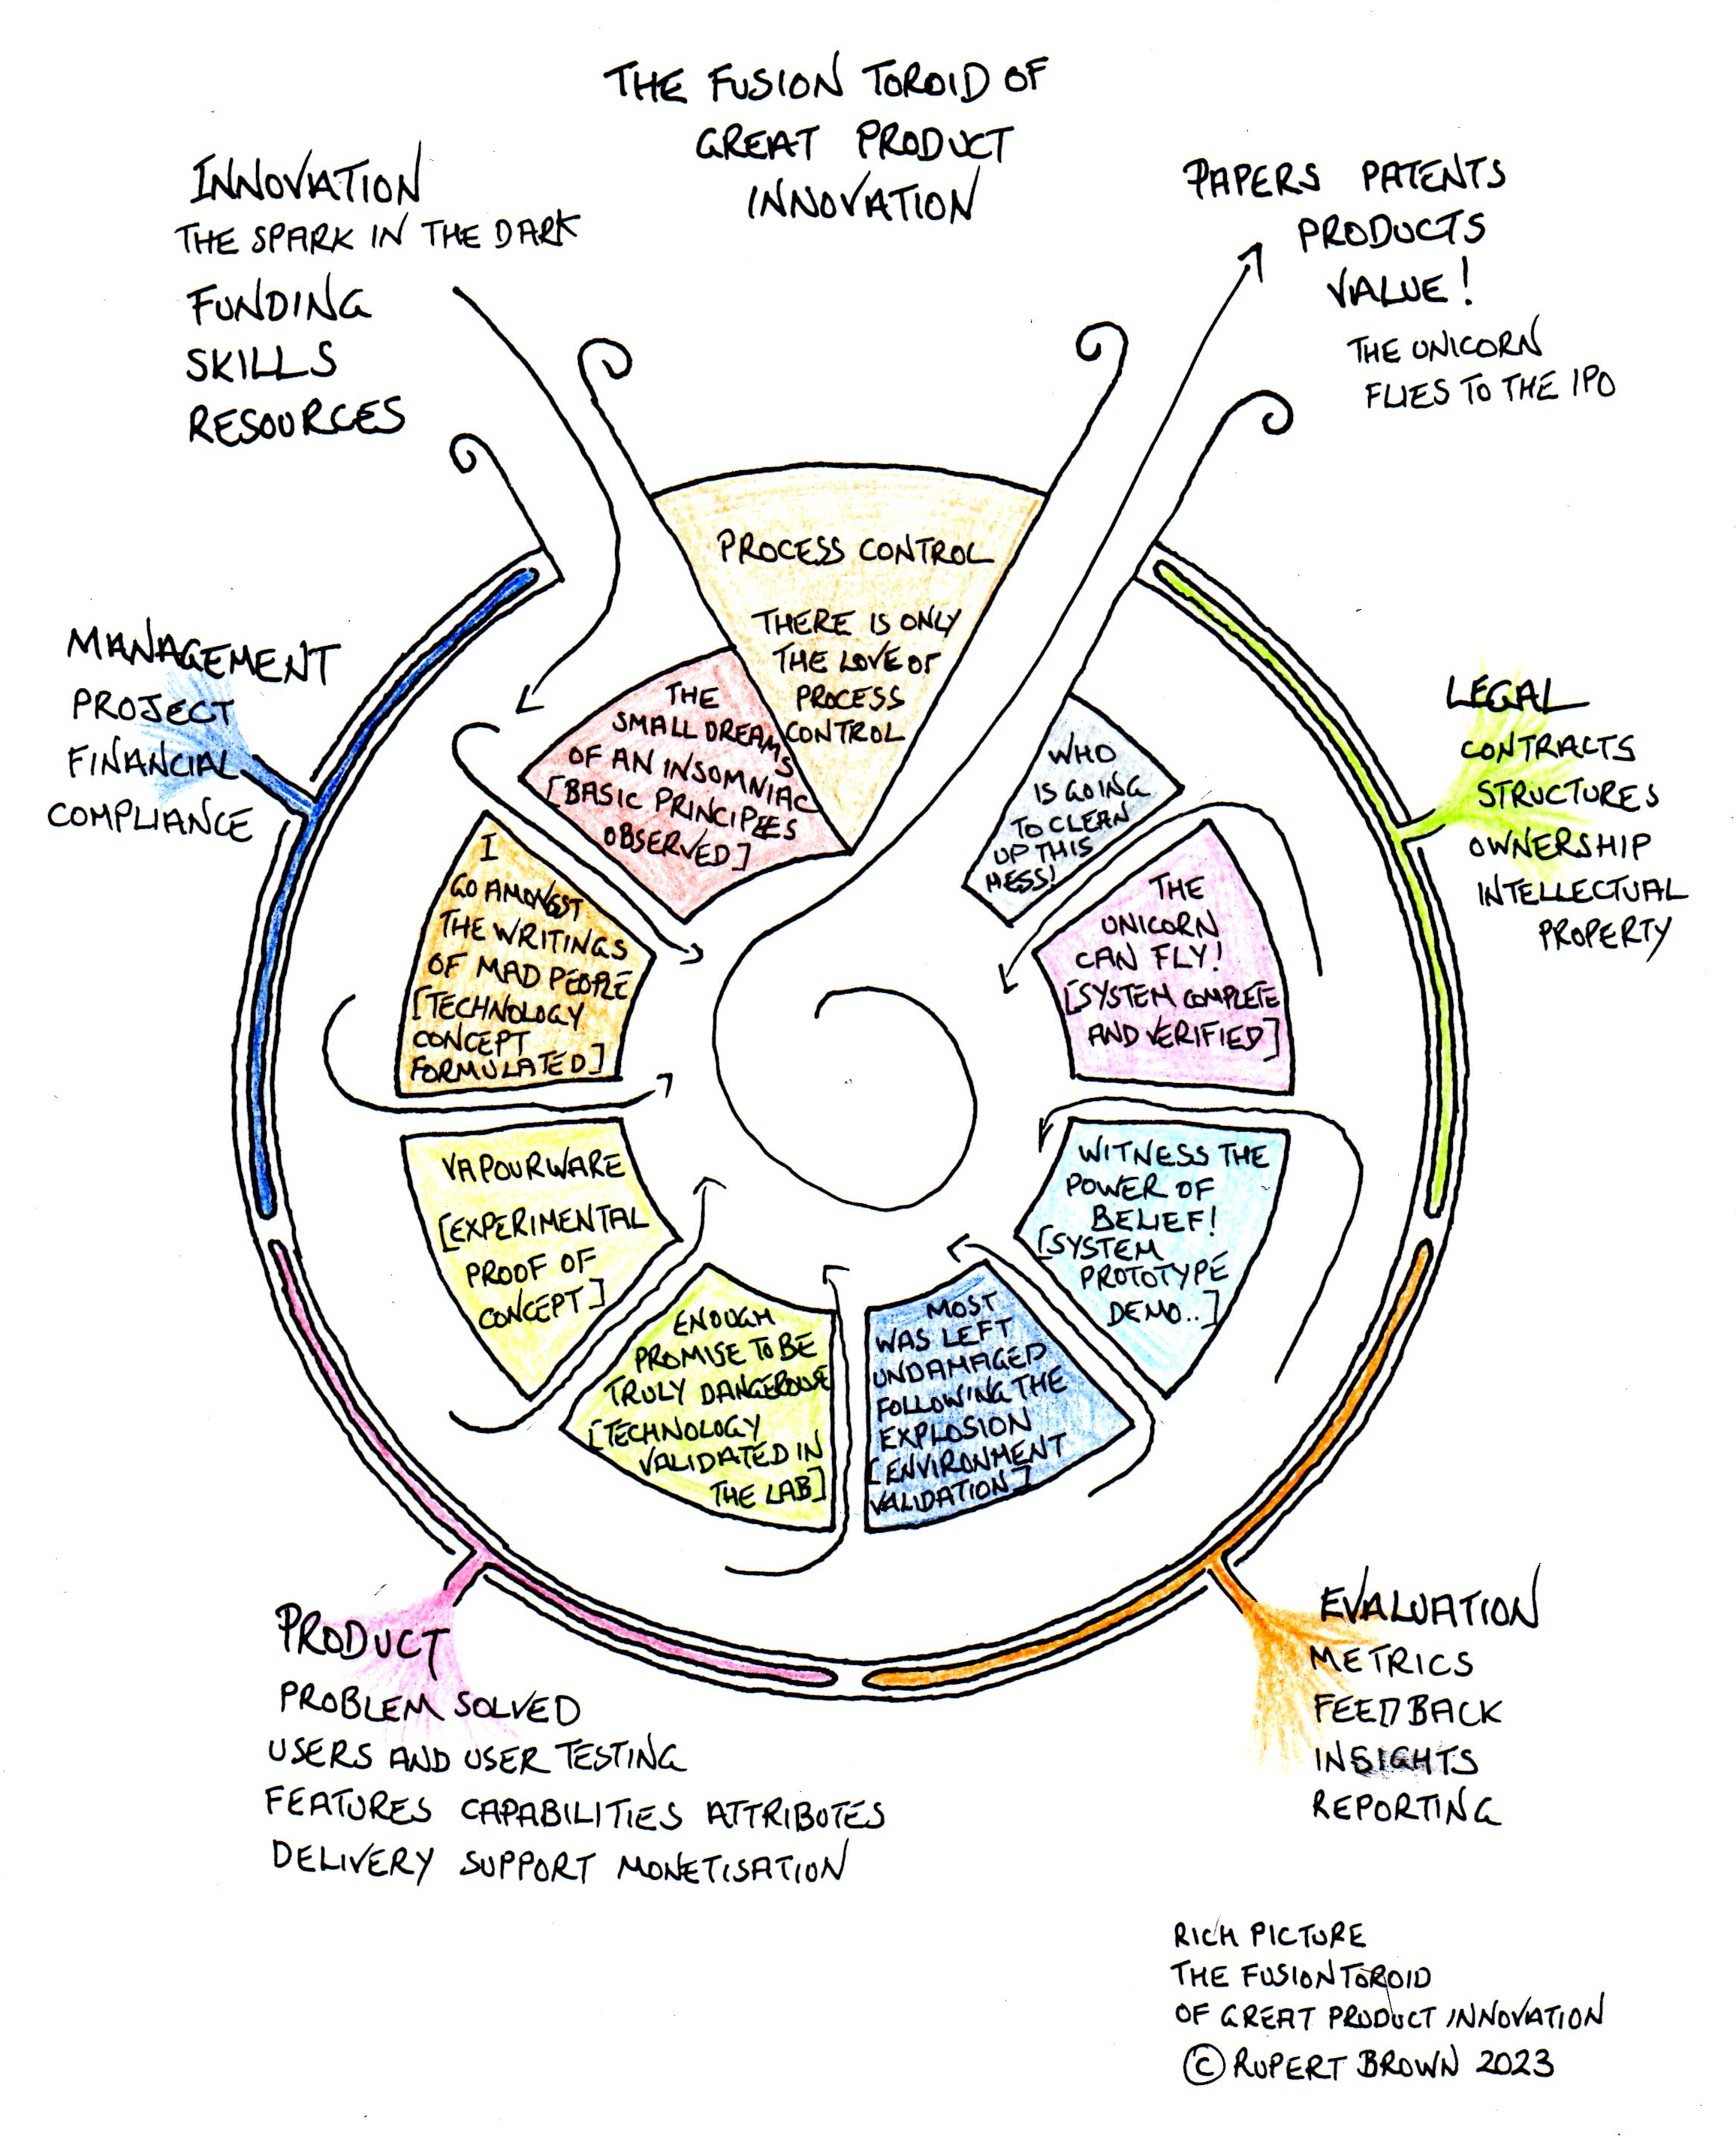 THE FUSION TOROID OF
GREAT PRODUCT
INNOVATION
INNOVATION
THE SPARK IN THE DARK
FUNDING
SKILLS
RESOURCES
PAPERS PATENTS
PRODUCTS
VALUE!
THE UNICORN
FLIES TO THE IPO
PROCESS CONTROL
THERE IS ONLY
THE LOVE OF
PROCESS
CONTROL
THE
SMALL DREAMS
OF AN INSOMNIAC
[BASIC PRINCIPLES
OBSERVED]
I
GO AMONGST
THE WRITINGS
OF MAD PEOPLE
[TECHNOLOGY
CONCEPT
FORMULATED]
VAPOURWARE
[EXPERIMENTAL
PROOF OF
CONCEPT]
ENOUGH
PROMISE TO BE
TRULY DANGEROUS
[TECHNOLOGY
VALIDATED IN
THE LAB]
MOST
WAS LEFT
UNDAMAGED
FOLLOWING THE
EXPLOSION
[ENVIRONMENT
VALIDATION]
WITNESS THE
POWER OF
BELIEF!
[SYSTEM
PROTOTYPE
DEMO..]
THE
UNICORN
CAN FLY!
[SYSTEM COMPLETE
AND VERIFIED]
WHO
IS GOING
TO CLEAN
UP THIS
MESS!
MANAGEMENT
PROJECT
FINANCIAL
COMPLIANCE
LEGAL
CONTRACTS
STRUCTURES
OWNERSHIP
INTELLECTUAL
PROPERTY
PRODUCT
PROBLEM SOLVED
USERS AND USER TESTING
FEATURES CAPABILITIES ATTRIBUTES
DELIVERY SUPPORT MONETISATION
EVALUATION
METRICS
FEEDBACK
INSIGHTS
REPORTING
RICH PICTURE
THE FUSION TOROID
OF GREAT PRODUCT INNOVATION
© RUPERT BROWN 2023